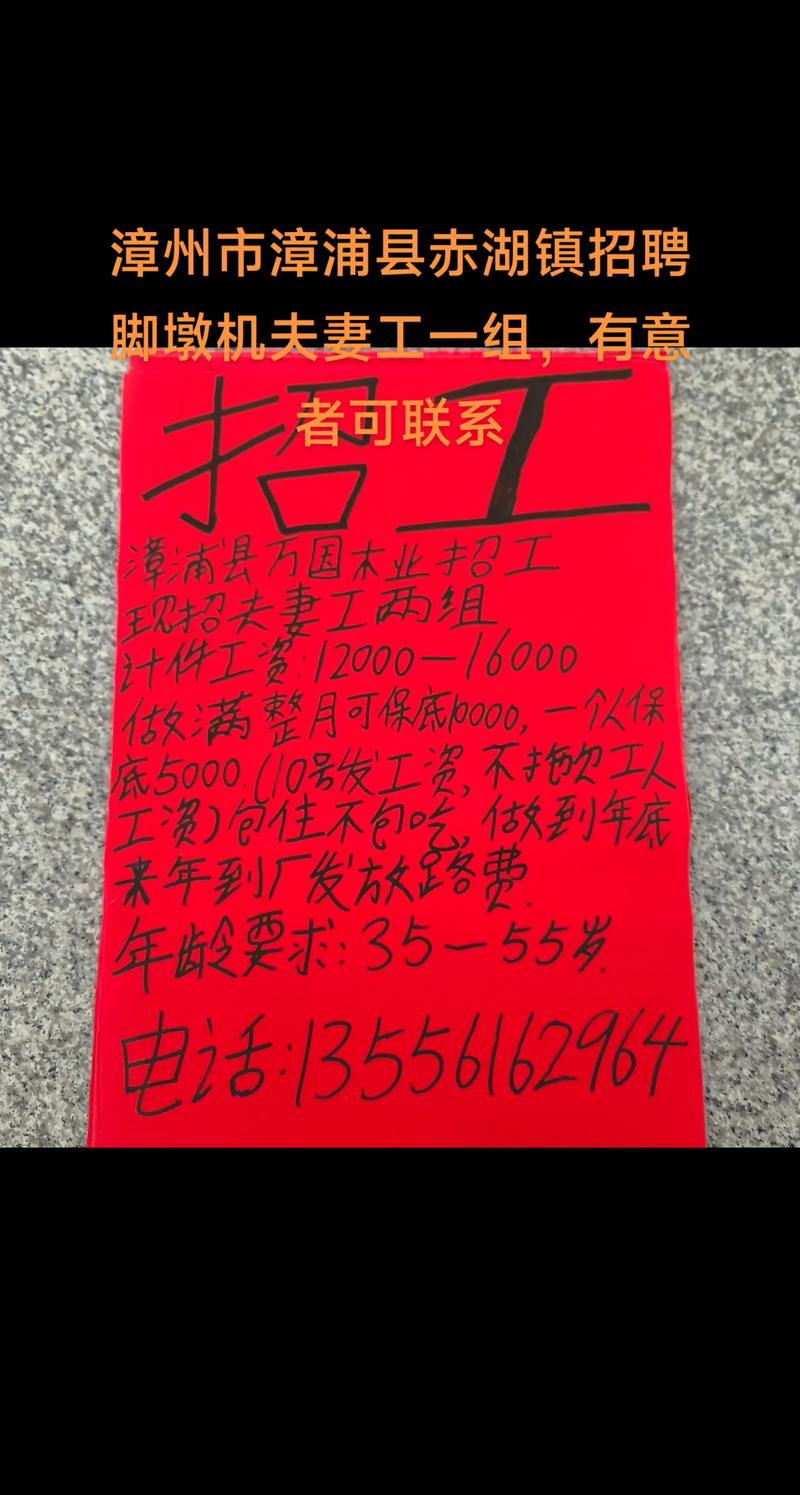 漳州市漳浦县赤湖镇招聘
脚墩机夫妻工一组，有意
者可联系
招工
漳浦县万国木业招工
现招夫妻工两组
计件工资:12000—16000
做满整月可保底10000,一个人保
底5000.(10号发工资,不拖欠工人
工资)包住不包吃,做到年底
来年到厂发放路费.
年龄要求:35—55岁.
电话:13556162964